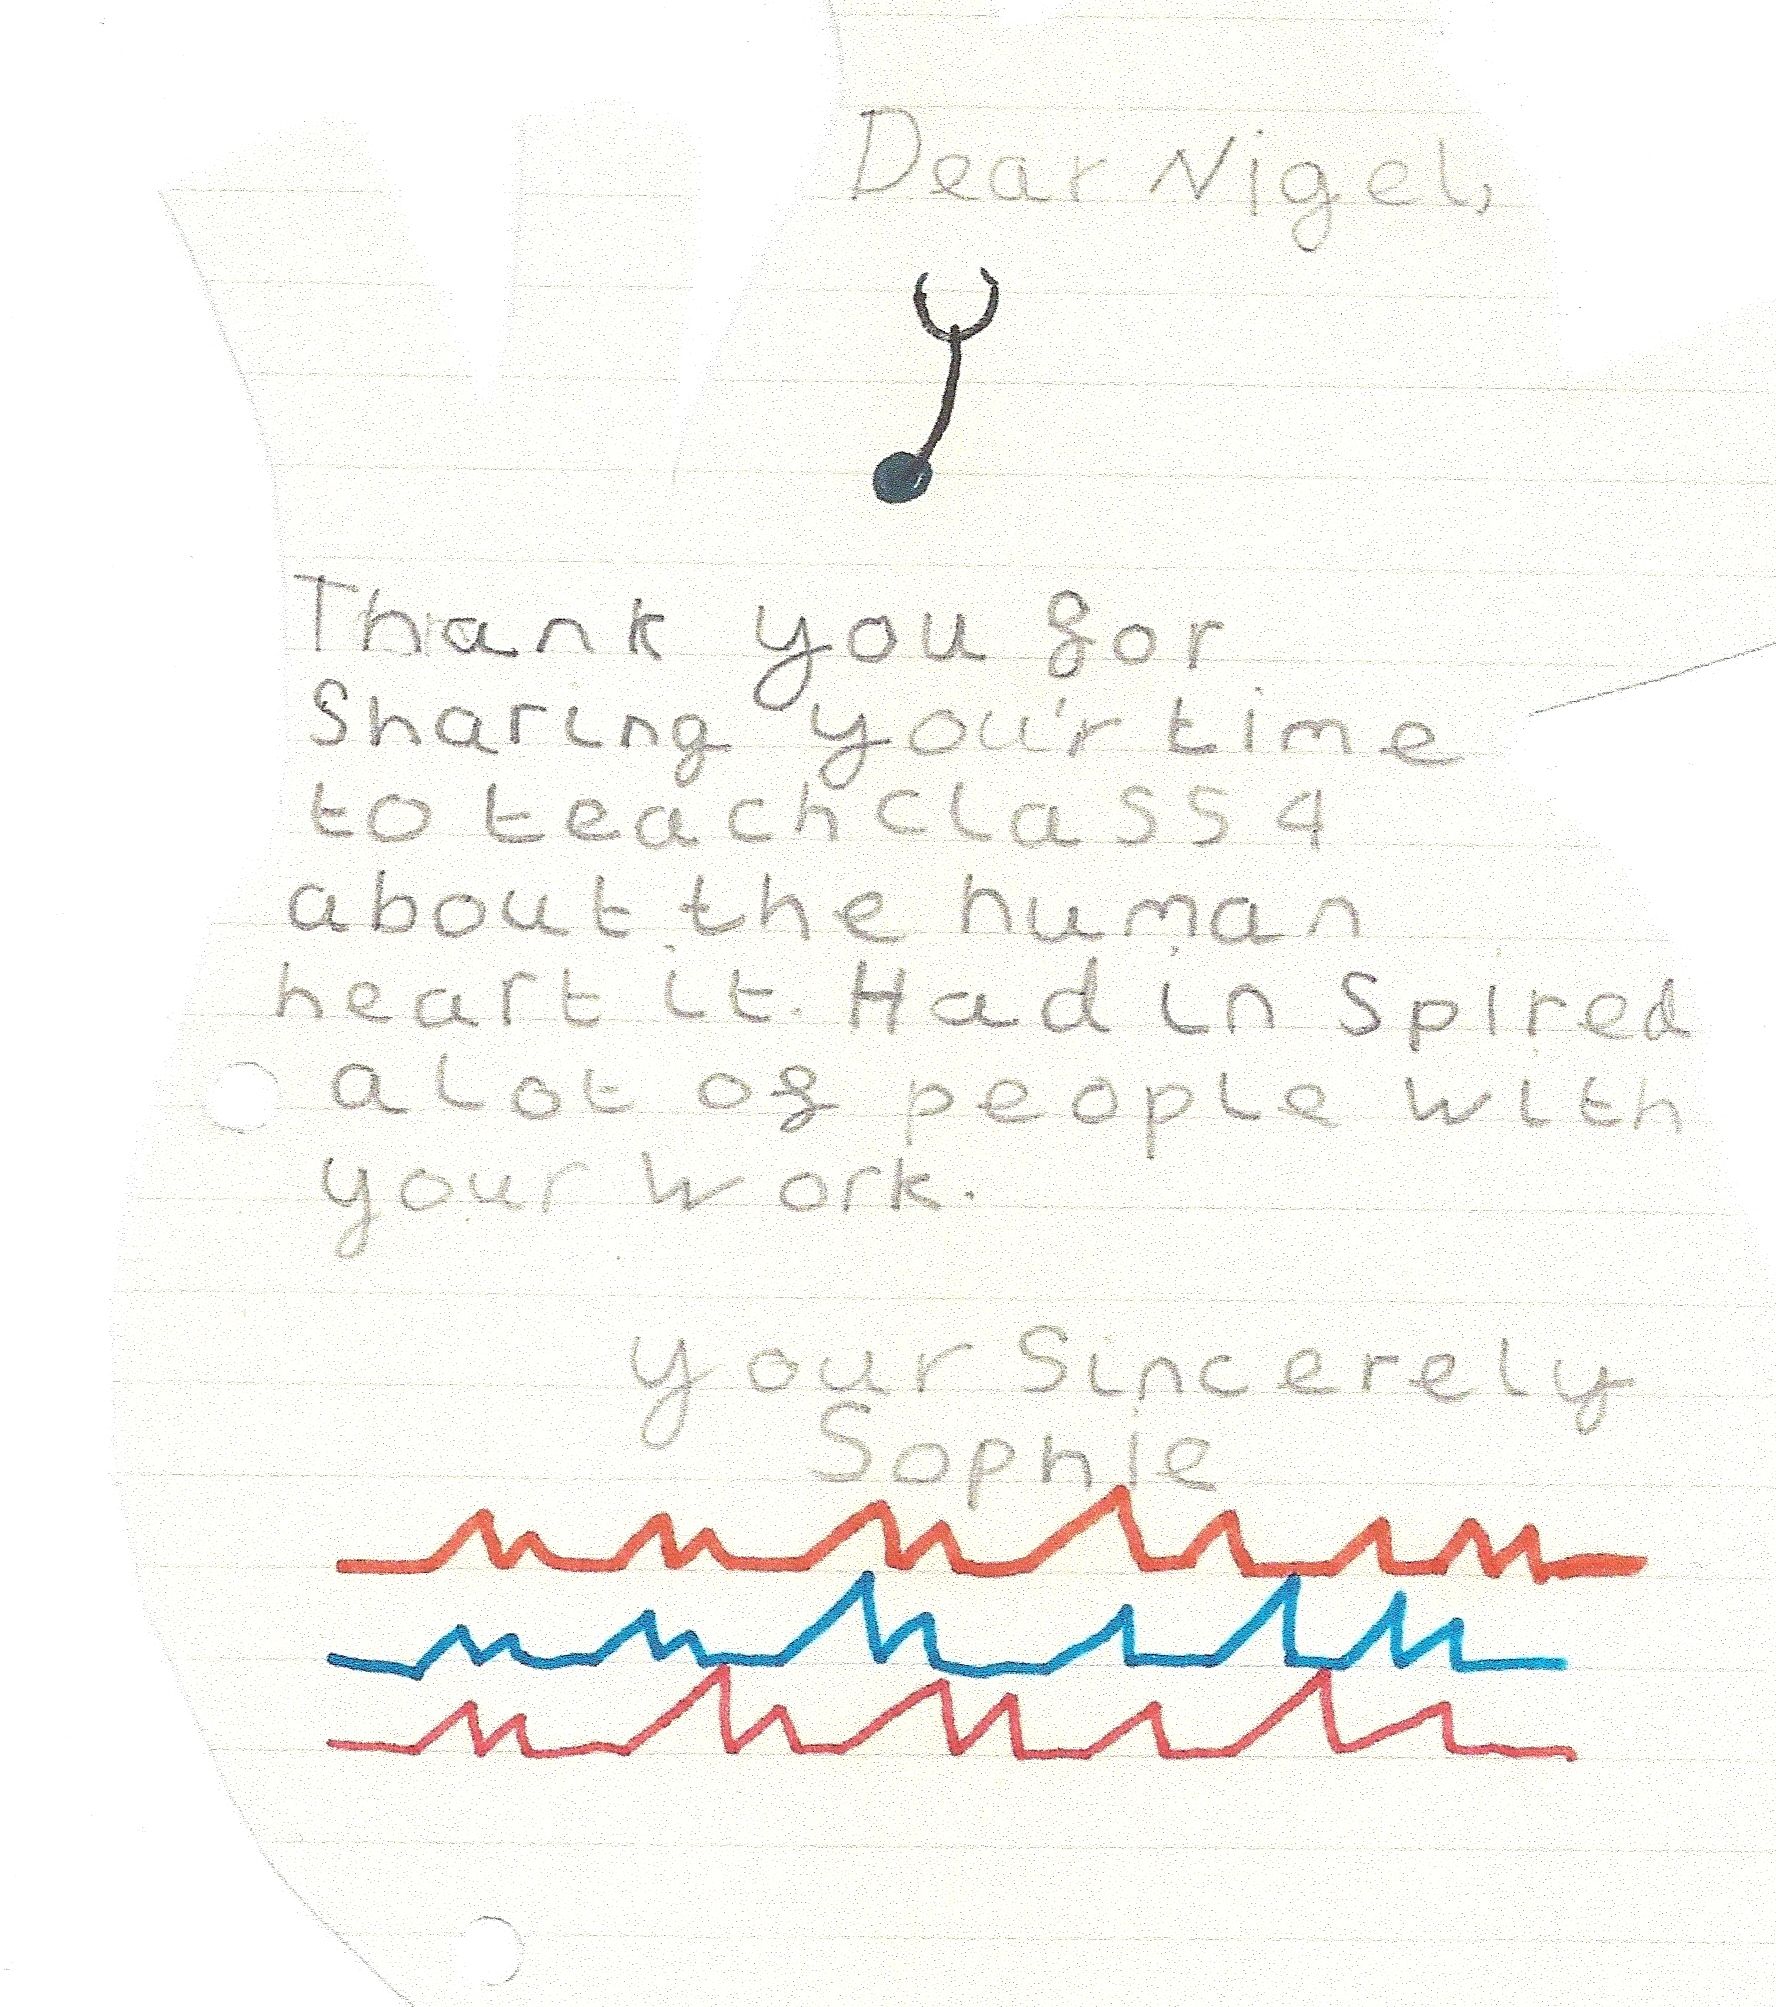 Dear Nigel,
Thank you for
Sharing you'r time
to teach class 4
about the human
heart it. Had in Spired
a lot of people with
your work.
your Sincerely
Sophie